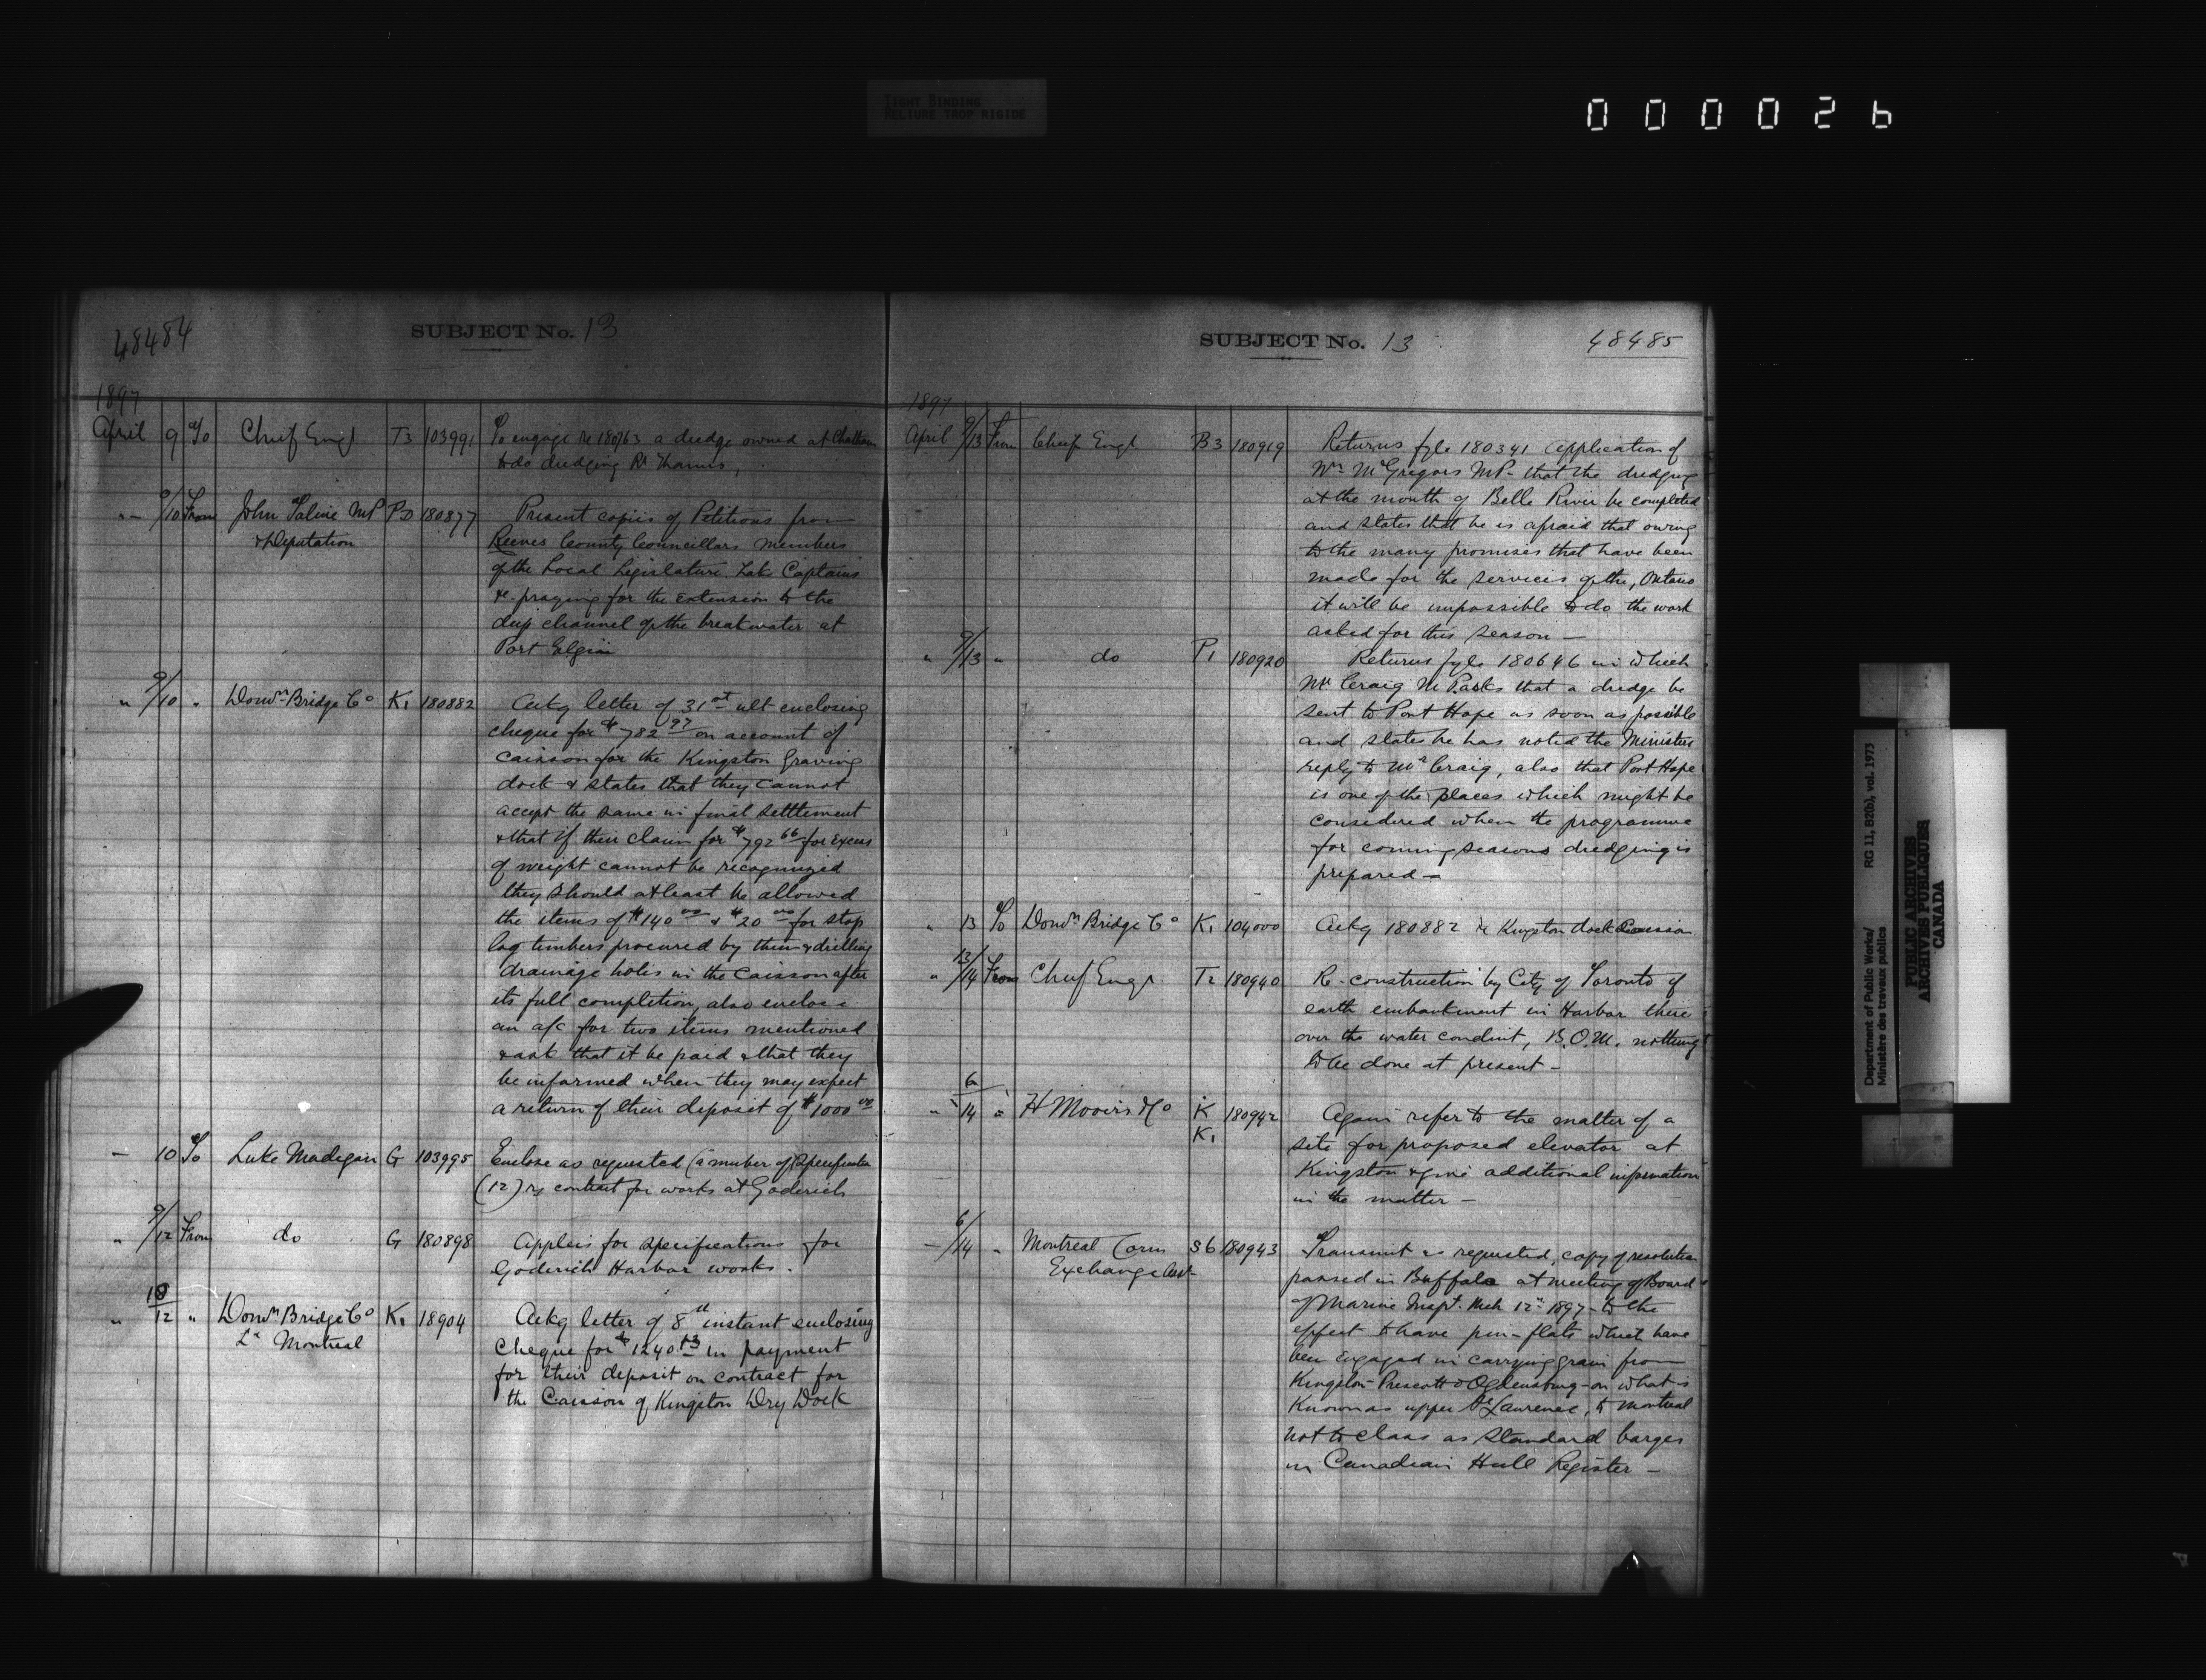 TIGHT BINDING
RELIURE TROP RIGIDE
000026
48484
SUBJECT No. 13
1897
April 9 To Chief Engr T3 103991 To engage re 180763 a dredge owned at Chatham
to do dredging Rr Thames,
" 9/10 From John Tolmie MP PD 180877 Present copies of Petitions from
& Deputation Reeves County Councillors members
of the Local Legislature. Lake Captains
&c. praying for the extension to the
deep channel of the breakwater at
Port Elgin
" 9/10 " Domn Bridge Co K1 180882 Ackg letter of 31st ult enclosing
cheque for $782 97 on account of
caisson for the Kingston Graving
dock & states that they cannot
accept the same in final settlement
& that if their claim for $792 66 for excess
of weight cannot be recognized
they should at least be allowed
the items of $140 00 & $20 00 for stop
log timbers procured by them & drilling
drainage holes in the caisson after
its full completion, also enclose
an a/c for two items mentioned
& ask that it be paid & that they
be informed when they may expect
a return of their deposit of $1000 00
" 10 To Luke Madigan G 103995 Enclose as requested (a number of) Specification
(12) re contract for works at Goderich
" 9/12 From do G 180898 Applies for specifications for
Goderich Harbor works.
" 10/12 " Domn Bridge Co K1 18904 Ackg letter of 8th instant enclosing
Ld Montreal cheque for $1240.13 in payment
for their deposit on contract for
the Caisson of Kingston Dry Dock
SUBJECT No. 13
48485
1897
April 9/13 From Chief Engr B3 180919 Returns fyle 180341 Application of
Wm McGregors MP- that the dredging
at the mouth of Belle River be completed
and states that he is afraid that owing
to the many promises that have been
made for the services of the, Ontario
it will be impossible to do the work
asked for this season —
" 9/13 " do P1 180920 Returns fyle 180646 in which
Mr Craig M.P. asks that a dredge be
sent to Port Hope as soon as possible
and states he has noted the Ministers
reply to Mr Craig, also that Port Hope
is one of the places which might be
considered when the programme
for coming seasons dredging is
prepared —
" 13 To Domn Bridge Co K1 104000 Ackg 180882 re Kingston dock Caisson
" 13/14 From Chief Engr. T2 180940 Re-construction by City of Toronto of
earth embankment in Harbor there
over the water conduit, B.O.M. nothing
to be done at present —
" 6/14 " H Mooers & Co K 180942 Again refer to the matter of a
K1 site for proposed elevator at
Kingston & give additional information
in the matter —
" 6/14 " Montreal Corn S6 180943 Transmit as requested, copy of resolution
Exchange Assn passed in Buffalo at meeting of Board
of Marine Inspt. Mch 12th 1897 — to the
effect to have pin-flats which have
been engaged in carrying grain from
Kingston - Prescott & Ogdensburg - on what is
known as upper St Lawrence, to Montreal
not to class as standard barges
in Canadian Hull Register —
Department of Public Works/ RG 11, B2(b), vol. 1973
Ministère des travaux publics
PUBLIC ARCHIVES
ARCHIVES PUBLIQUES
CANADA